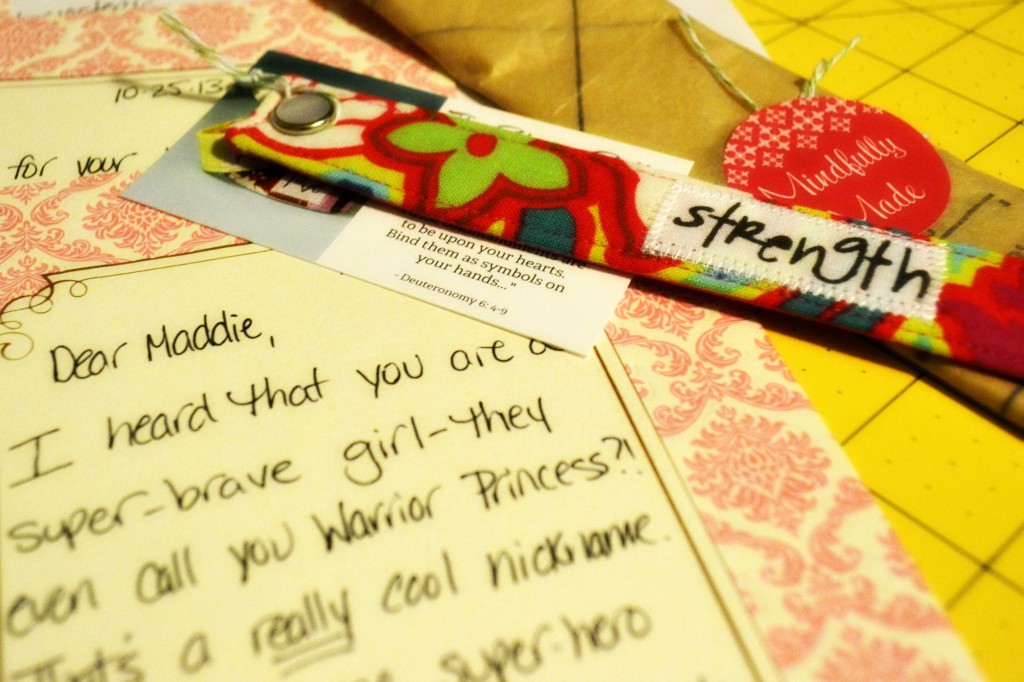 10·25·13
for your
Mindfully
Made
strength
to be upon your hearts.
Bind them as symbols on
your hands..."
- Deuteronomy 6:4-9
Dear Maddie,
I heard that you are a
super-brave girl-they
even call you Warrior Princess?!
That's a really cool nickname.
super-hero